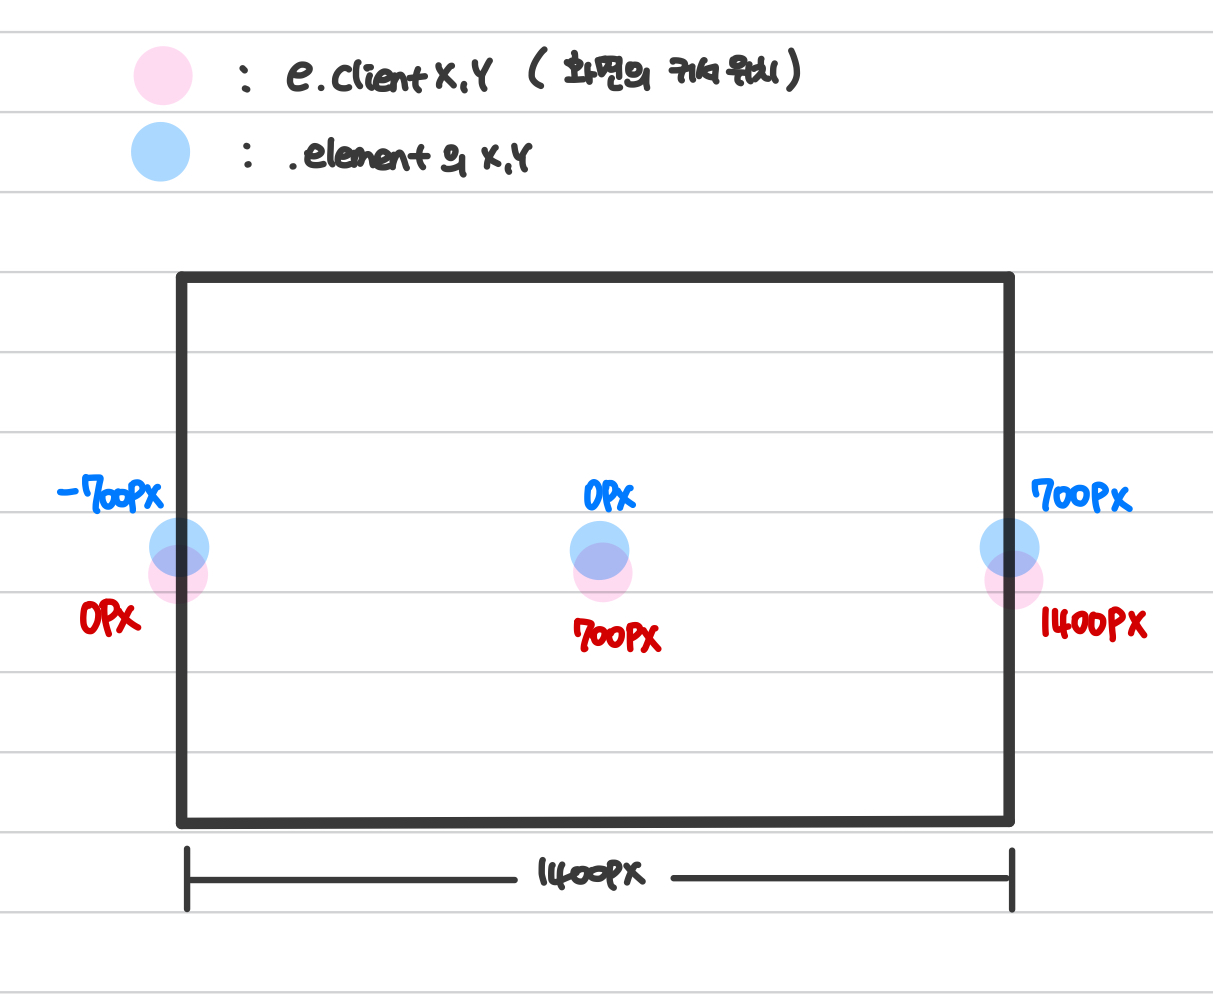 : e.clientX,Y (화면의 커서 위치)
: .element의 X,Y
-700PX
0PX
700PX
0PX
700PX
1400PX
1400PX